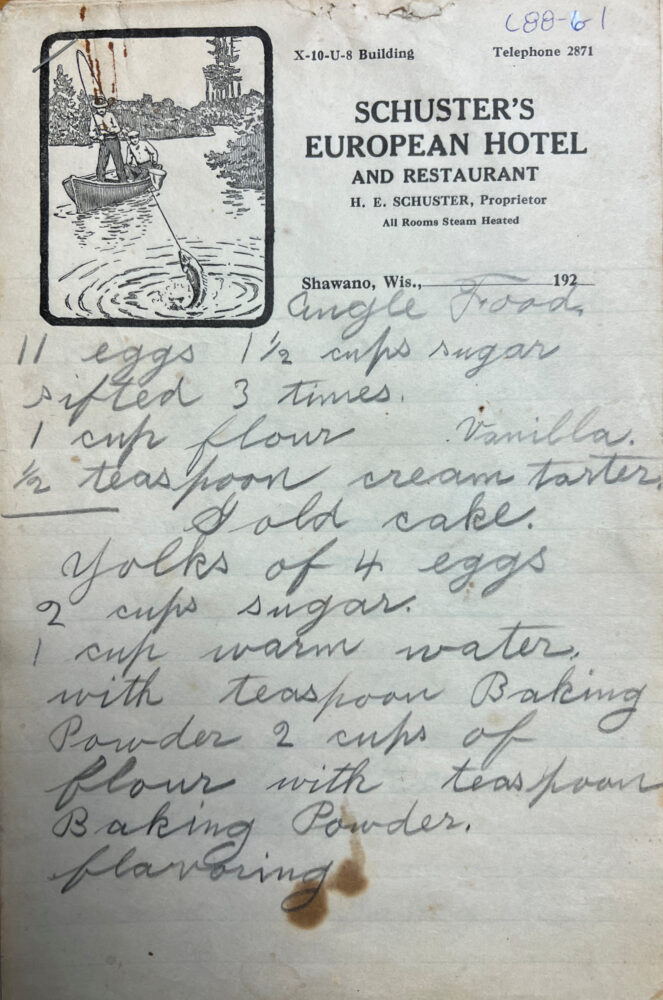 C88-61
X-10-U-8 Building Telephone 2871
SCHUSTER'S
EUROPEAN HOTEL
AND RESTAURANT
H. E. SCHUSTER, Proprietor
All Rooms Steam Heated
Shawano, Wis., 192
Angle Food.
11 eggs 1 1/2 cups sugar
sifted 3 times.
1 cup flour Vanilla.
1/2 teaspoon cream tarter.
Gold cake.
Yolks of 4 eggs
2 cups sugar.
1 cup warm water.
with teaspoon Baking
Powder 2 cups of
flour with teaspoon
Baking Powder.
flavoring